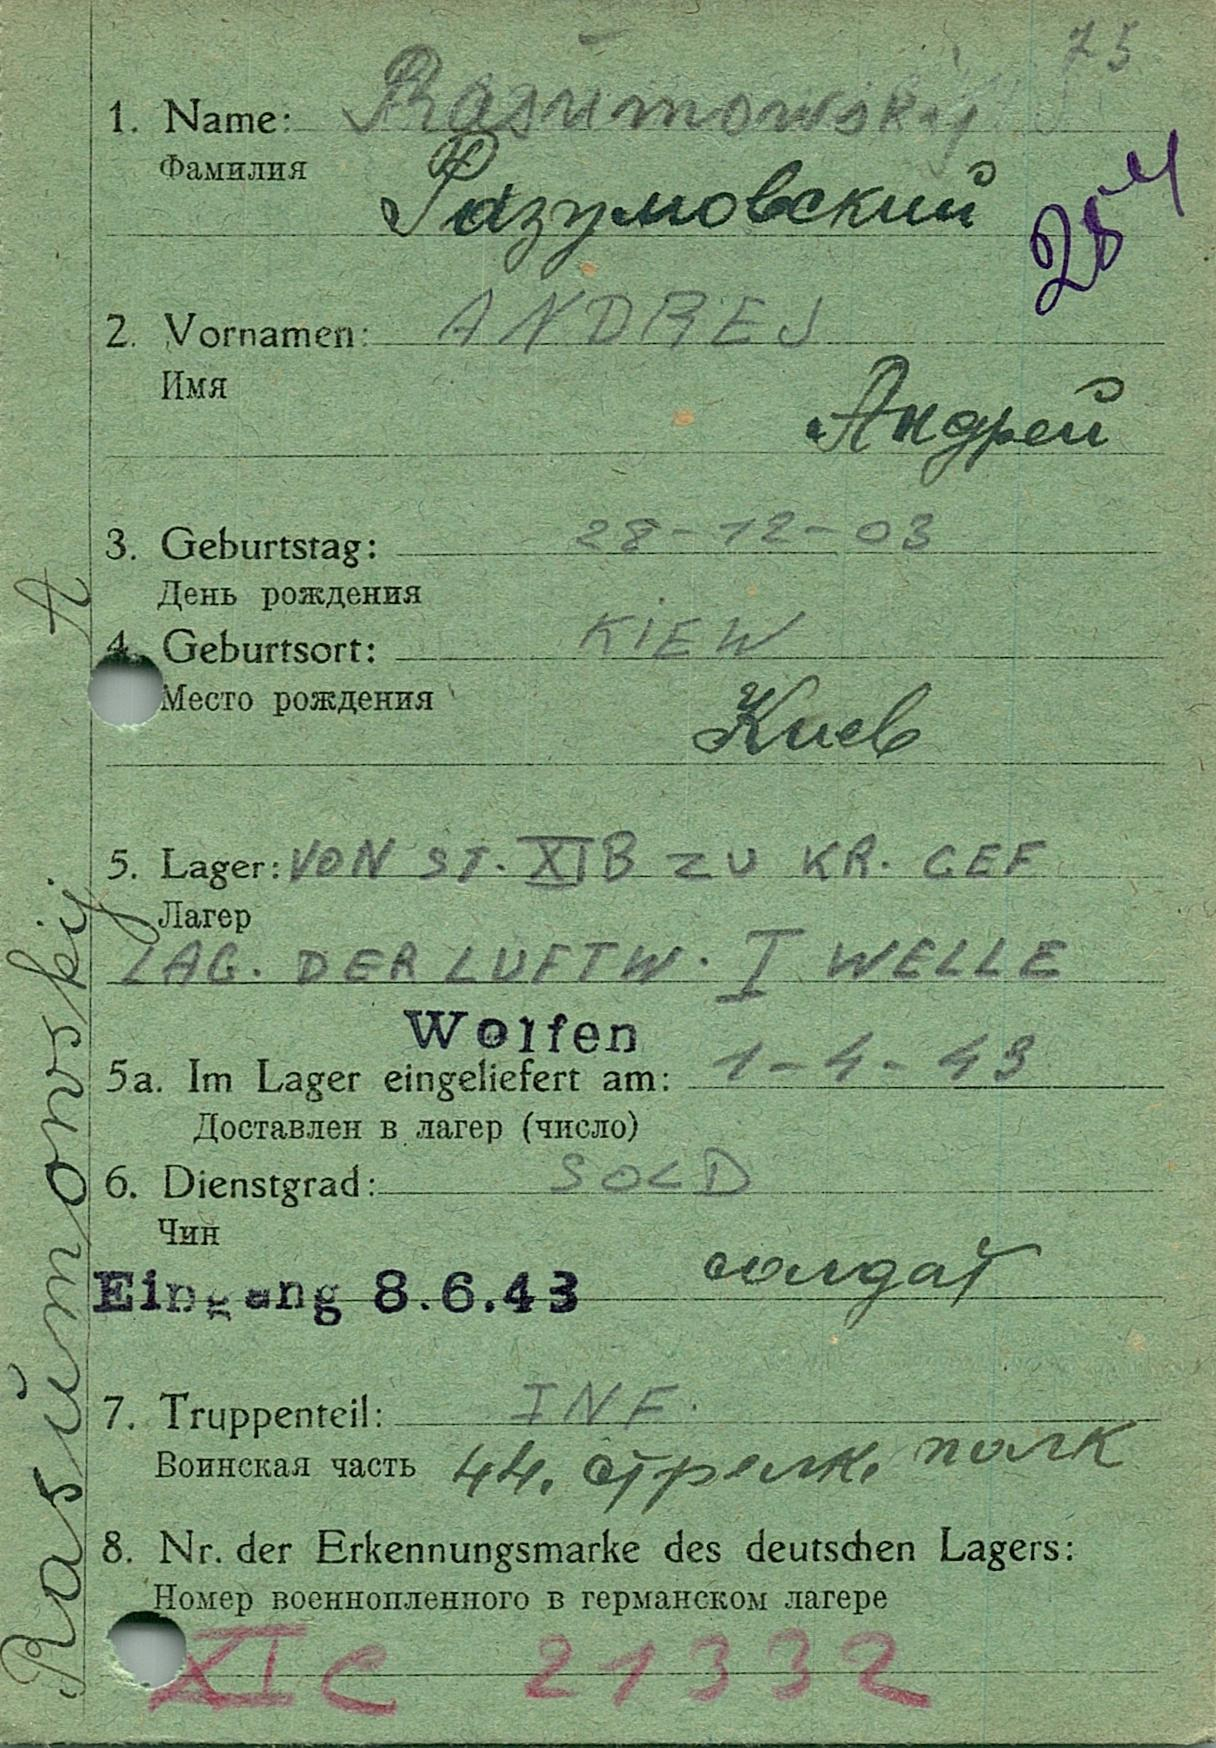 75
1. Name: Rasumowskij
Фамилия
Разумовский
2. Vornamen: ANDREJ
Имя
Андрей
3. Geburtstag: 28-12-03
День рождения
4. Geburtsort: KIEW
Место рождения
Киев
5. Lager: VON ST. XIB ZU KR. GEF
Лагер
LAG. DER LUFTW. I WELLE
Wolfen
5a. Im Lager eingeliefert am: 1-4-43
Доставлен в лагер (число)
6. Dienstgrad: SOLD
Чин
солдат
Eingang 8.6.43
7. Truppenteil: INF.
Воинская часть 44. стрелк. полк
8. Nr. der Erkennungsmarke des deutschen Lagers:
Номер военнопленного в германском лагере
XIC 21332
Rasŭmowskij A